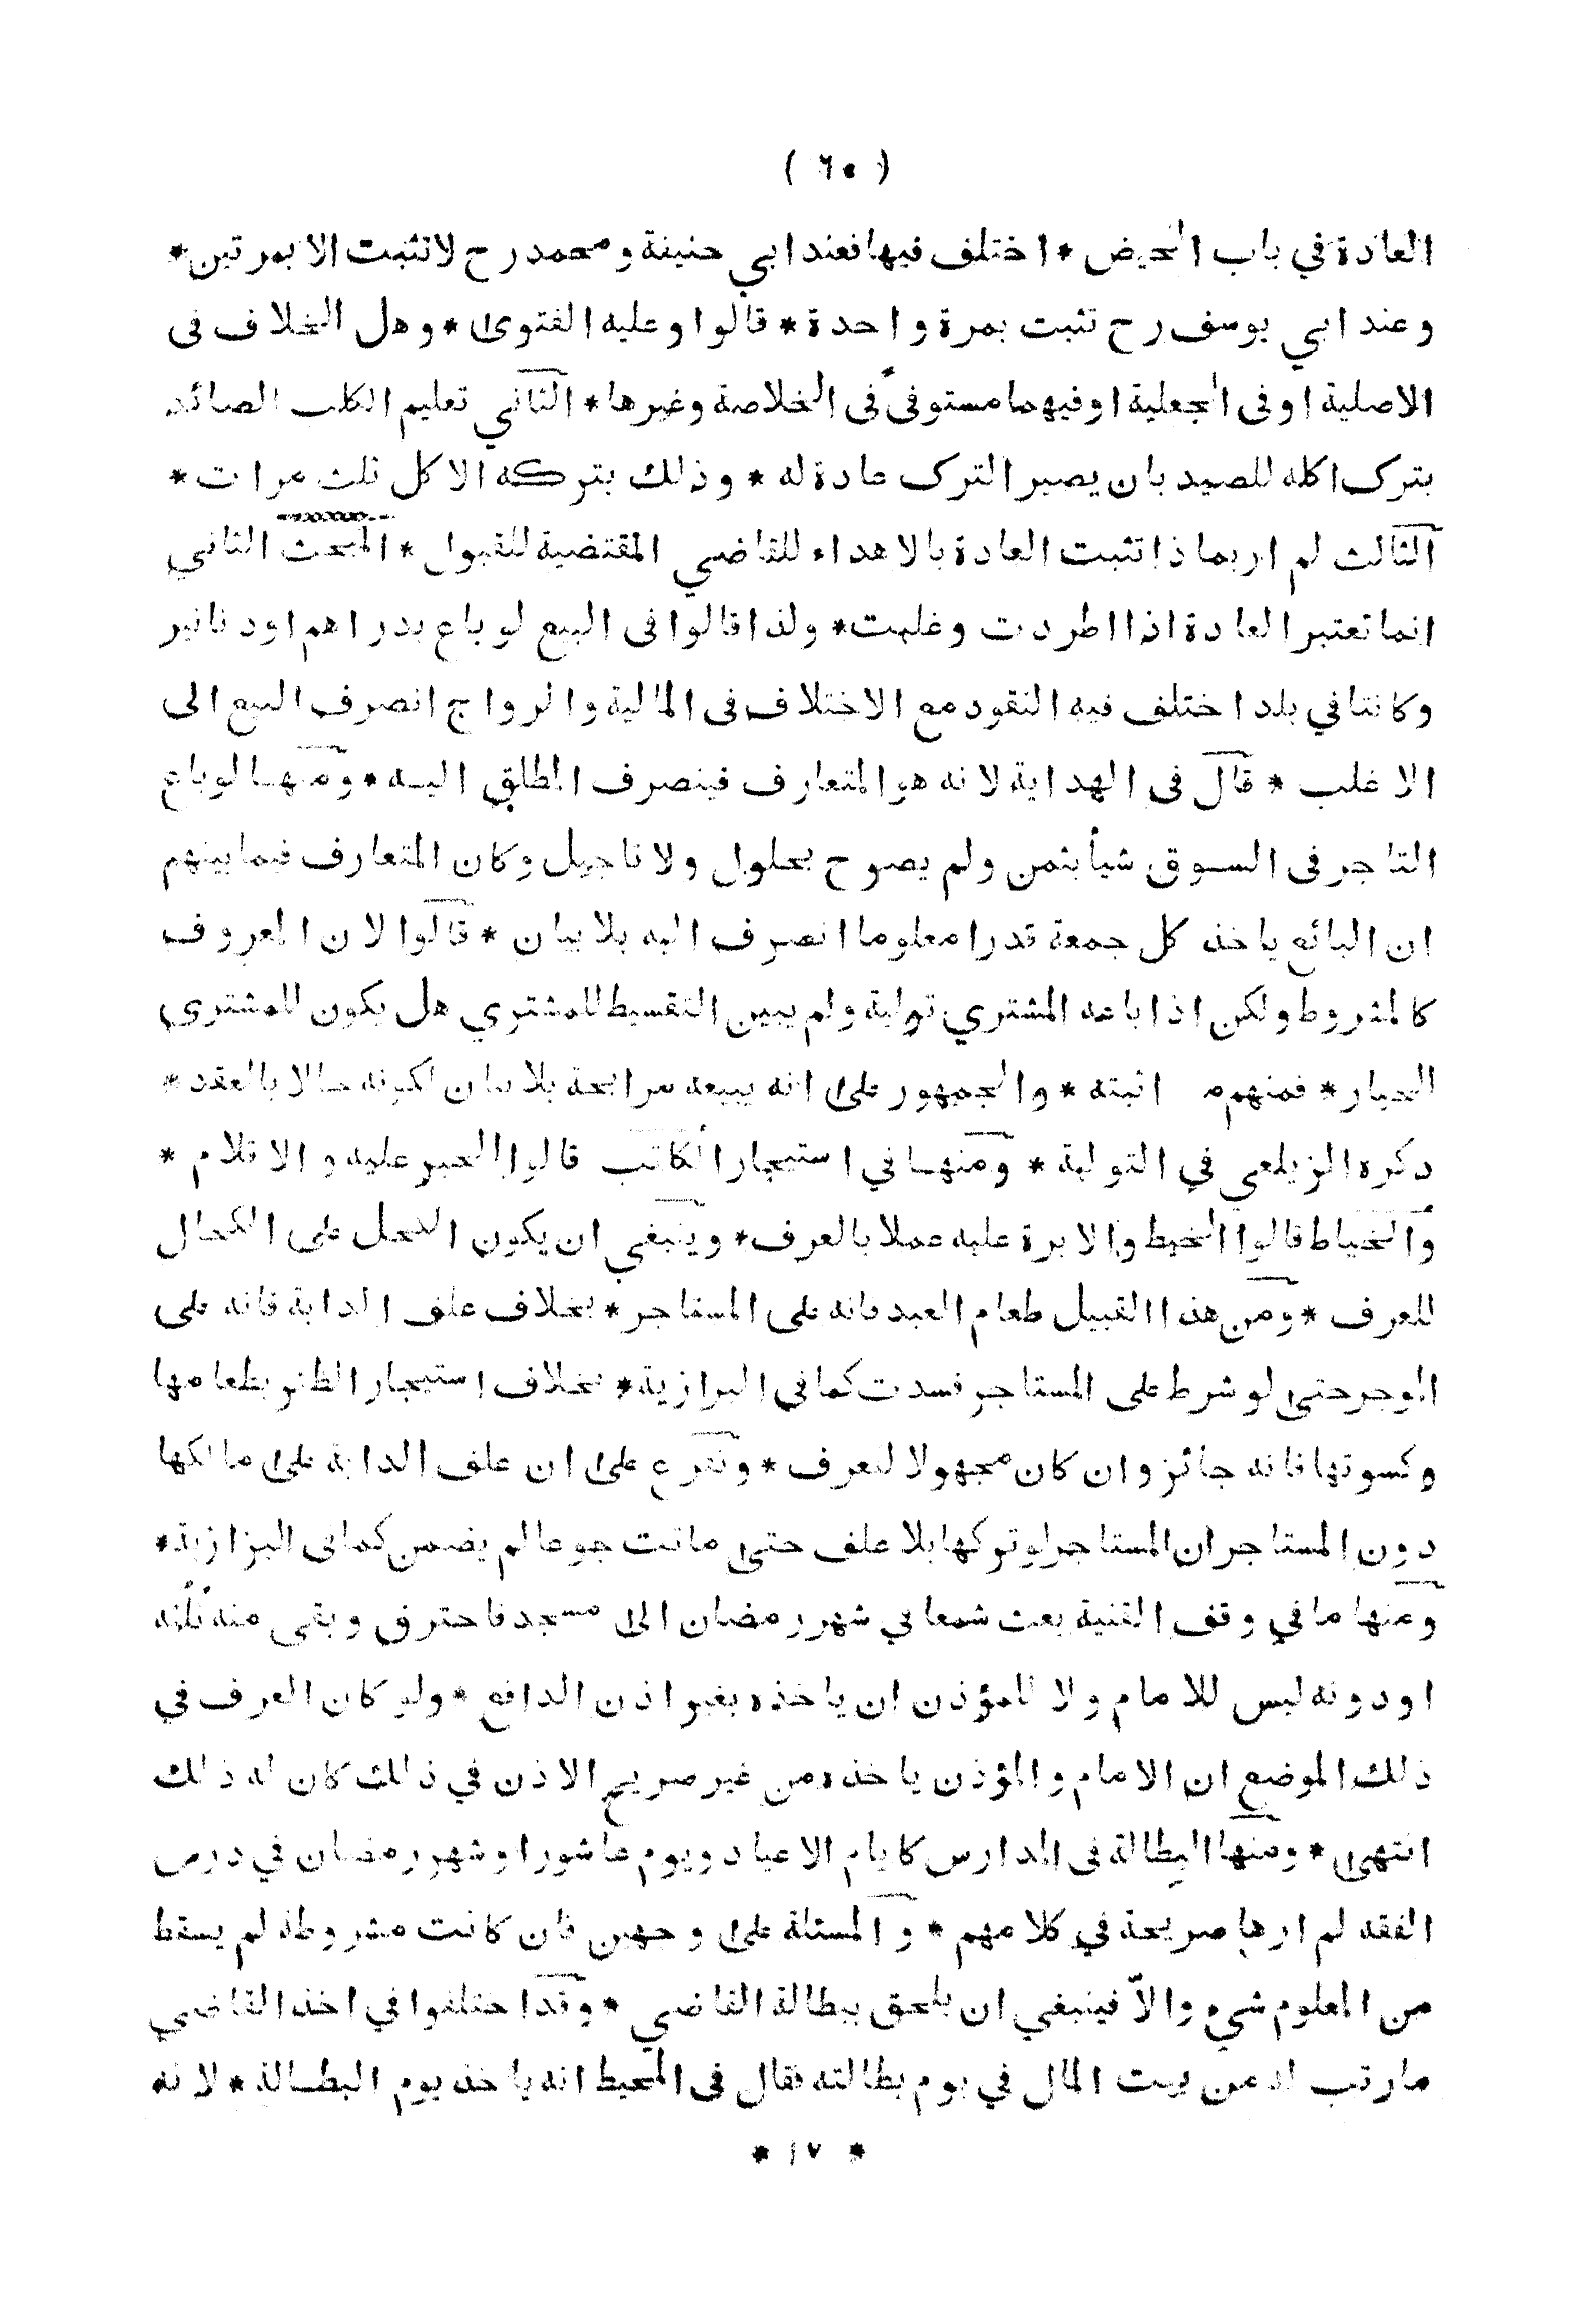 ( ٦٥ )
العادة في باب الحيض * اختلف فيها فعند ابي حنيفة و محمد رح لا تثبت الا بمرتين *
وعند ابي يوسف رح تثبت بمرة واحدة * قالوا وعليه الفتوى * وهل الخلاف فى
الاصلية او فى الجعلية او فيهما مستوفىً فى الخلاصة وغيرها * الثاني تعليم الكلب الصائد
بترك اكله للصيد بان يصير الترك عادة له * وذلك بتركه الاكل ثلث مرات *
الثالث لم ار بماذا تثبت العادة بالاهداء للقاضي المقتضية للقبول * المبحث الثاني
انما تعتبر العادة اذا اطردت وغلبت * ولذا قالوا فى البيع لو باع بدراهم او دنانير
وكانتا في بلد اختلف فيه النقود مع الاختلاف فى المالية والرواج انصرف البيع الى
الاغلب * قال فى الهداية لانه هو المتعارف فينصرف المطلق اليه * ومنها لو باع
التاجر فى السوق شيأ بثمن ولم يصرح بحلول ولا تاجيل وكان المتعارف فيما بينهم
ان البائع ياخذ كل جمعة قدرا معلوما انصرف اليه بلا بيان * قالوا لان المعروف
كالمشروط ولكن اذا باعه المشتري تولية ولم يبين التقسيط للمشتري هل يكون للمشتري
الخيار * فمنهم م اثبته * والجمهور على انه يبيعه مرابحة بلا بيان لكونه حالا بالعقد *
ذكره الزيلعي في التولية * ومنها في استيجار الكاتب قالوا الحبر عليه والاقلام *
والخياط قالوا الخيط والابرة عليه عملا بالعرف * وينبغي ان يكون الكحل على الكحال
للعرف * ومن هذا القبيل طعام العبد فانه على المستاجر * بخلاف علف الدابة فانه على
الموجر حتى لو شرط على المستاجر فسدت كما في البزازية * بخلاف استيجار الظئر بطعامها
وكسوتها فانه جائز وان كان مجهولا لعرف * وتفرع على ان علف الدابة على مالكها
دون المستاجر ان المستاجر لو تركها بلا علف حتى ماتت جوعا لم يضمن كما فى البزازية *
ومنها ما في وقف القنية بعث شمعا في شهر رمضان الى مسجد فاحترق وبقى منه ثلُثه
او دونه ليس للامام ولا للمؤذن ان ياخذه بغير اذن الدافع * ولو كان العرف في
ذلك الموضع ان الامام والمؤذن ياخذه من غير صريح الاذن في ذلك كان له ذلك
انتهى * ومنها البطالة فى المدارس كايام الاعياد ويوم عاشورا وشهر رمضان في درس
الفقه لم ارها صريحة في كلامهم * والمسئلة على وجهين فان كانت مشروطة لم يسقط
من المعلوم شيء والاّ فينبغي ان يلحق ببطالة القاضي * وقد اختلفوا في اخذ القاضي
ما رتب له من بيت المال في يوم بطالته فقال فى المحيط انه ياخذ يوم البطالة * لانه
* ١٧ *